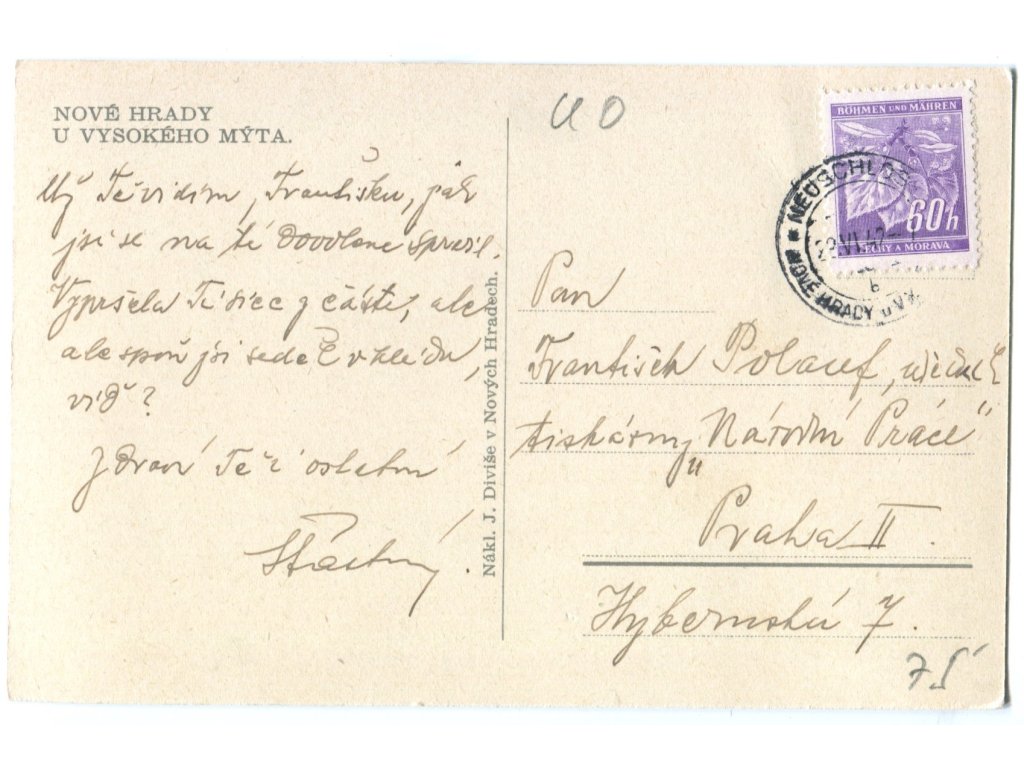 NOVÉ HRADY
U VYSOKÉHO MÝTA.
Už Tě vidím, Františku, jak
jsi se na té dovolené spravil.
Vypršela Ti sice z části, ale
alespoň jsi seděl v klidu,
viď?
Zdraví Tě i ostatní
Šťastný.
Nákl. J. Diviše v Nových Hradech.
UO
BÖHMEN UND MÄHREN
60h
ČECHY A MORAVA
NEUSCHLOS
NOVÉ HRADY u V.
Pan
František Polacef,
tiskárny „Národní Práce"
Praha II.
Hybernská 7.